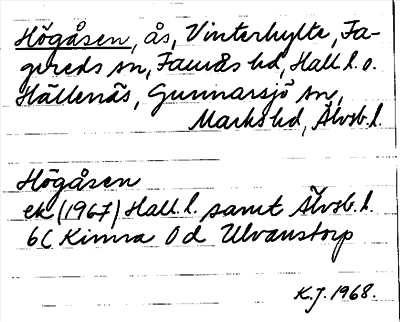 Högåsen, ås, Vinterhylte, Fa-
gereds sn, Faurås hd, Hall.l. o.
Hällenäs, Gunnarsjö sn,
Marks hd, Älvsb.l.
Högåsen
ek (1967) Hall.l. samt Älvsb.l.
6C Kinna 0d Ulvanstorp
K.J. 1968.